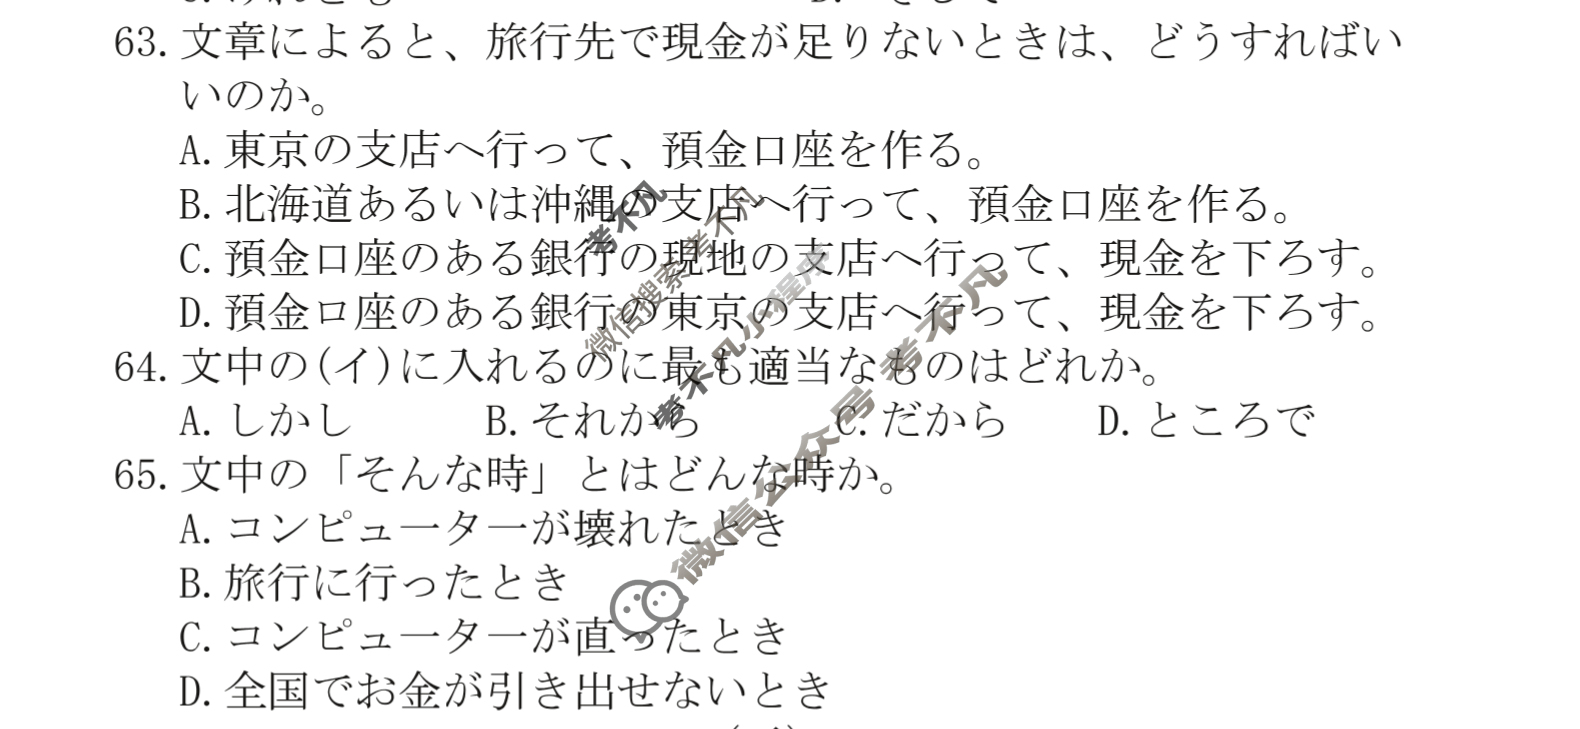 63.文章によると、旅行先で現金が足りないときは、どうすればい
いのか。
A.東京の支店へ行って、預金口座を作る。
B.北海道あるいは沖縄の支店へ行って、預金口座を作る。
C.預金口座のある銀行の現地の支店へ行って、現金を下ろす。
D.預金口座のある銀行の東京の支店へ行って、現金を下ろす。
64.文中の(イ)に入れるのに最も適当なものはどれか。
A.しかし B.それから C.だから D.ところで
65.文中の「そんな時」とはどんな時か。
A.コンピューターが壊れたとき
B.旅行に行ったとき
C.コンピューターが直ったとき
D.全国でお金が引き出せないとき
考不凡
微信搜索考不凡
考不凡小程序
微信公众号 考不凡